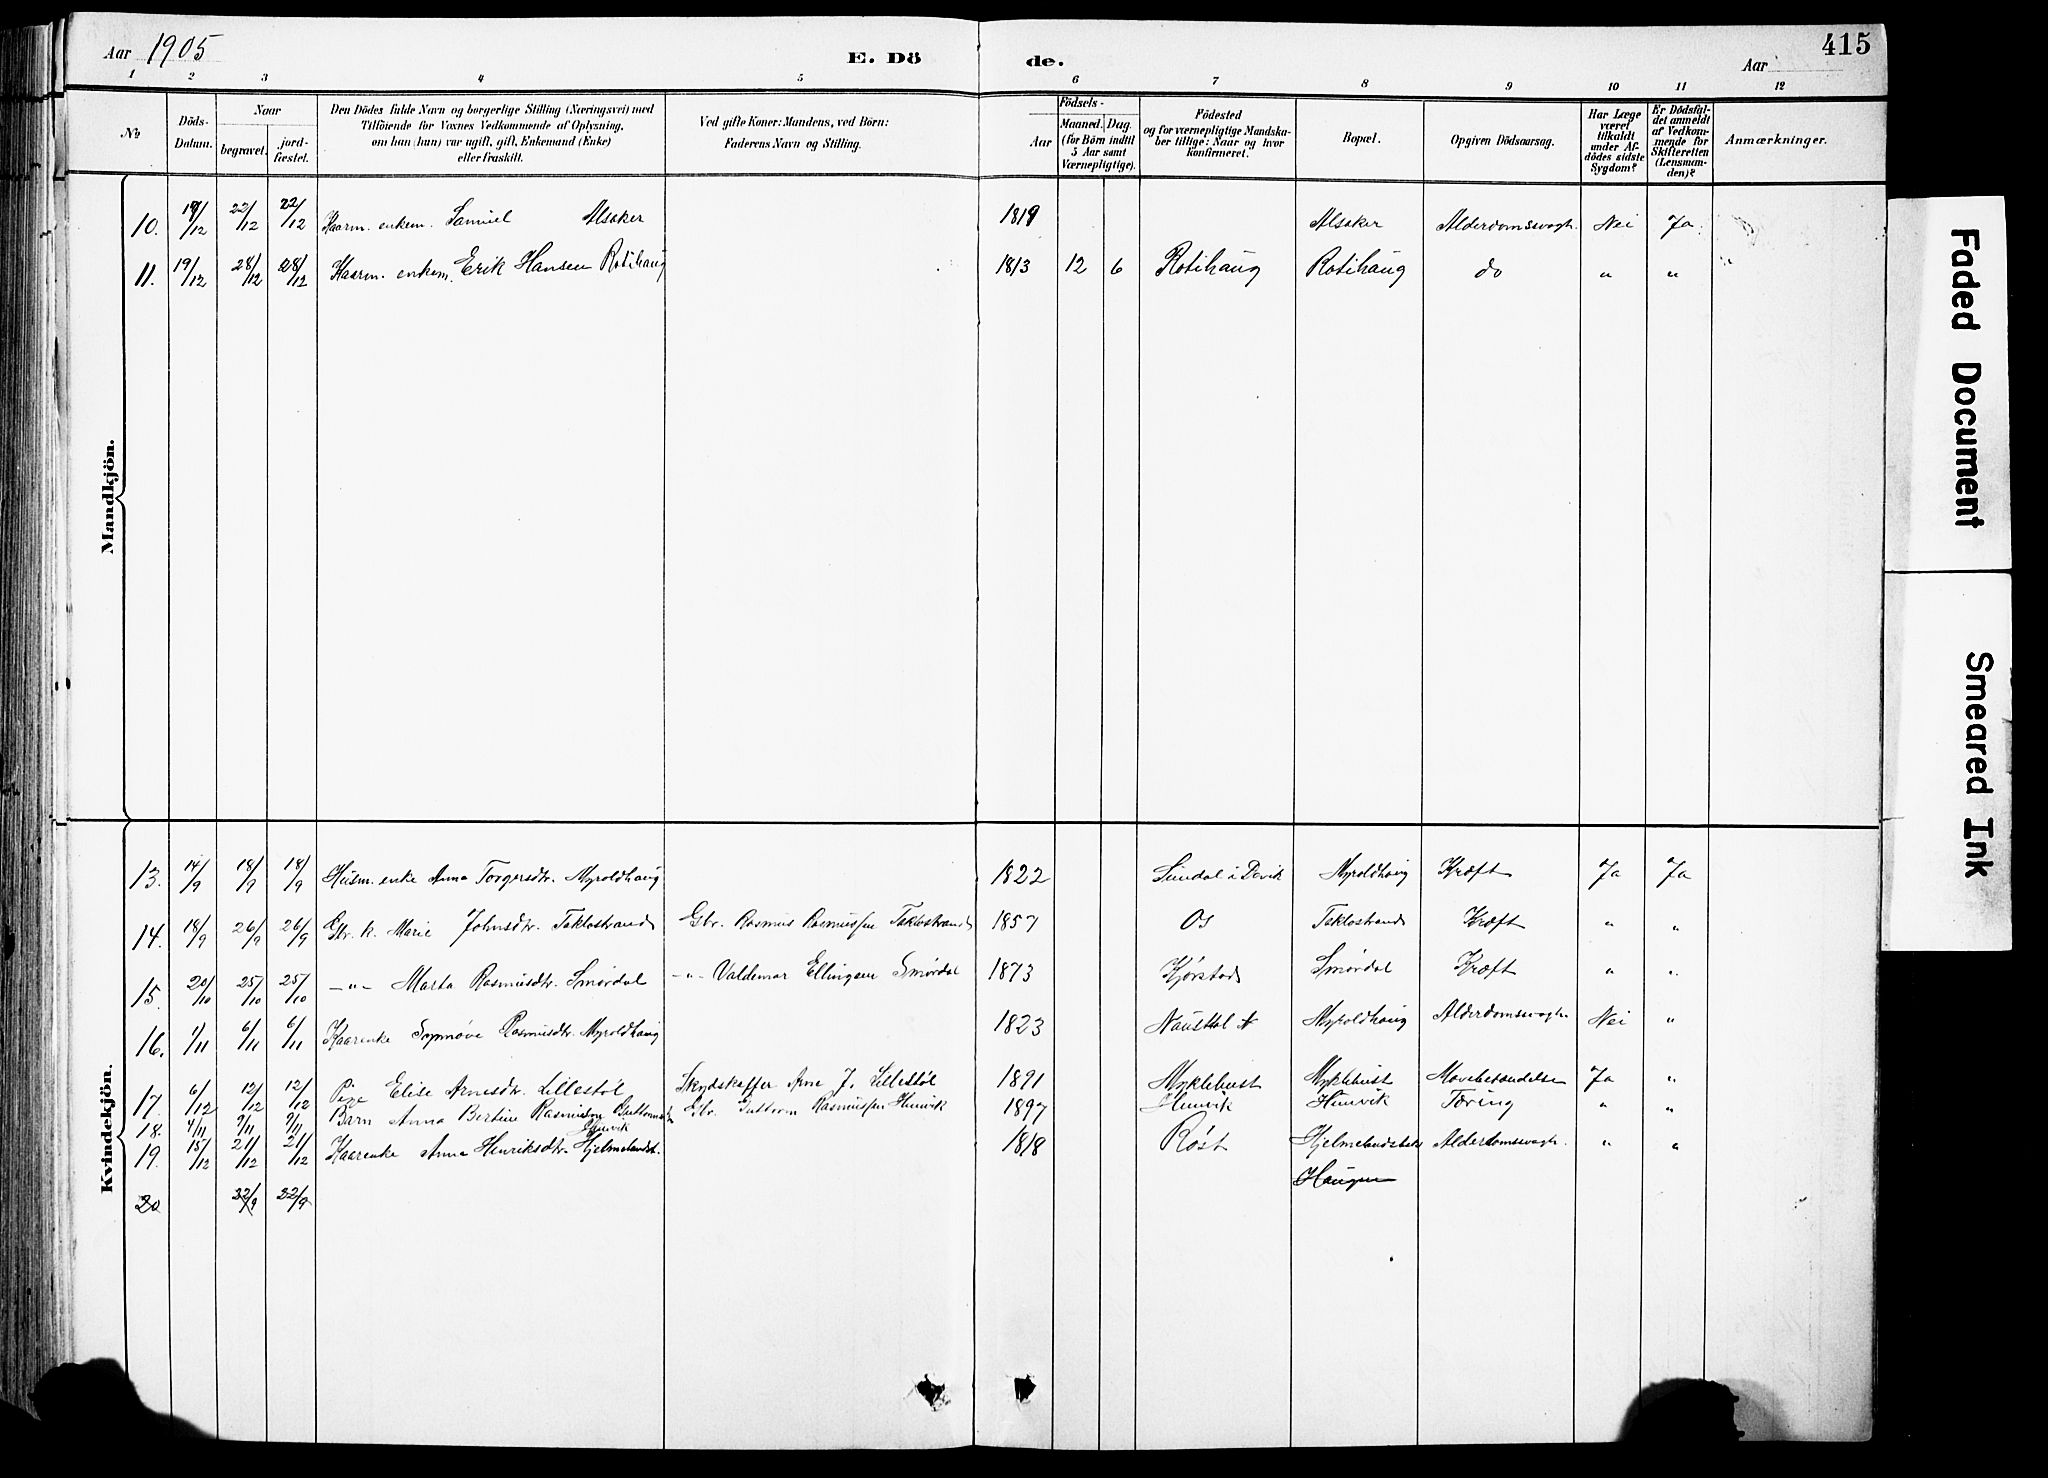 Aar 1905
E. Dö
de.
Aar
415
1 2 3 4 5 6 7 8 9 10 11 12
No
Döds-
Datum.
Naar
begravet.
jord-
fæstet.
Den Dödes fulde Navn og borgerlige Stilling (Næringsvei) med
Tilföiende for Voxnes Vedkommende af Oplysning,
om han (hun) var ugift, gift, Enkemand (Enke)
eller fraskilt.
Ved gifte Koner: Mandens, ved Börn:
Faderens Navn og Stilling.
Födsels-
Aar
Maaned. Dag.
(for Börn indtil
5 Aar samt
Værnepligtige).
Födested
og for værnepligtige Mandska-
ber tillige: Naar og hvor
konfirmeret.
Bopæl.
Opgiven Dödsaarsag.
Har Læge
været
tilkaldt
under Af-
dödes sidste
Sygdom?
Er Dödsfal-
det anmeldt
af Vedkom-
mende for
Skifteretten
(Lensman-
den)?
Anmærkninger.
Mandkjön.
10. 19/12 22/12 22/12 Kaarm. enkem. Samuel Alsaker 1819 Alsaker Alderdomssvagh. Nei Ja
11. 19/12 28/12 28/12 Kaarm. enkem. Erik Hansen Rotihaug 1813 12 6 Rotihaug Rotihaug do " "
Kvindekjön.
13. 14/9 18/9 18/9 Husm. enke Anna Torgersdtr. Myroldhaug 1822 Sundal i Davik Myroldhaug Kræft Ja Ja
14. 18/9 26/9 26/9 Gbr. k. Marie Johnsdtr. Taklostrand Gbr. Rasmus Rasmussen Taklostrand 1857 Os Taklostrand Kræft " "
15. 20/10 25/10 25/10 -"- Marta Rasmusdtr. Smørdal -"- Valdemar Ellingsen Smørdal 1873 Kjørstad Smørdal Kræft " "
16. 1/11 6/11 6/11 Kaarenke Synnøve Rasmusdtr. Myroldhaug 1823 Naustdal Myroldhaug Alderdomssvagh. Nei "
17. 6/12 12/12 12/12 Pige Elise Arnesdtr. Lillestøl Skydskaffer Arne J. Lillestøl 1891 Myklebust Myklebust Mavebetændelse Ja "
18. 4/11 9/11 9/11 Barn Anna Bertine Rasmine Guttormsdtr Hunvik Gbr. Guttorm Rasmussen Hunvik 1897 Hunvik Hunvik Tæring " "
19. 15/12 21/12 21/12 Kaarenke Anna Henriksdtr. Hjelmelandst. 1818 Røst Hjelmelandsbak Alderdomssvagh. " "
20 22/9 22/9 Haugen
Faded Document
Smeared Ink